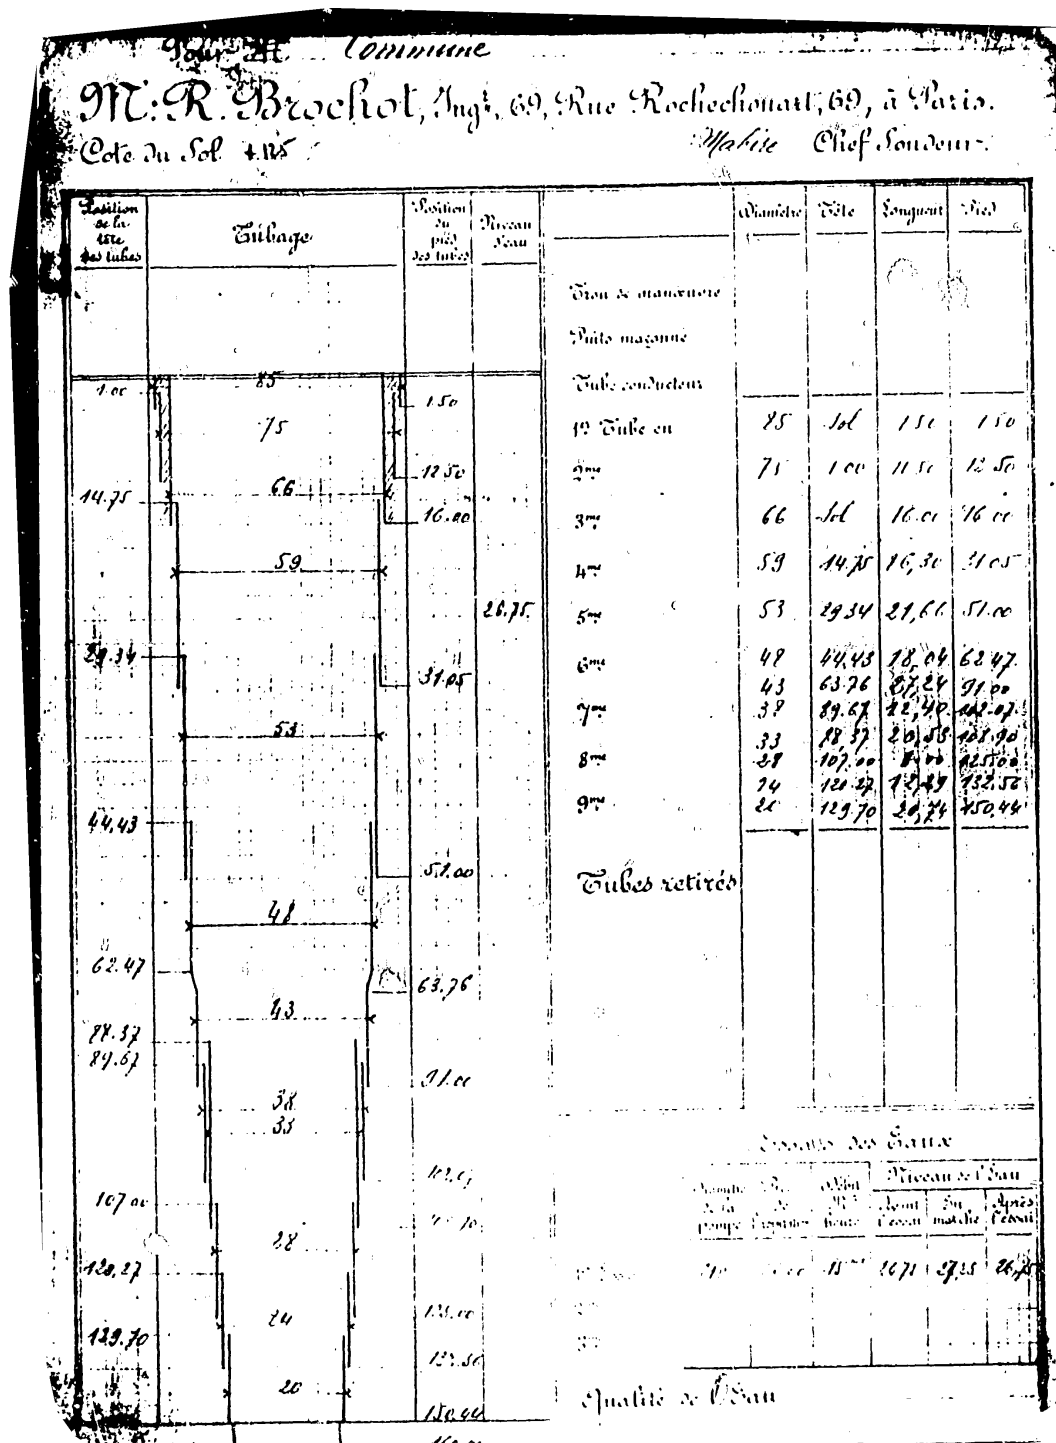 Pour M Commune
M. R. Brochot, Ingr, 69, Rue Rochechouart, 69, à Paris.
Cote du Sol + 125
Chef Sondeur
Position de la tête des tubes
Tubage
Position du pied des tubes
Niveau d'eau
1.00
14.75
29.34
44.43
62.47
88.37
89.67
107 00
120,27
129.70
85
75
66
59
53
48
43
38
33
28
24
20
1.50
12.50
16.00
31.05
51.00
63.76
91.00
125.00
132.56
150.44
26.75
Diamètre Tête Longueur Pied
Trou de manœuvre
Puits maçonné
Tube conducteur
1er Tube en 85 Sol 1 50 1 50
2me 75 1.00 11 50 12.50
3me 66 Sol 16.00 16 00
4me 59 14.75 16,30 31 05
5me 53 29.34 21,66 51.00
6me 48 44,43 18,04 62 47
43 63.76 27,24 91.00
7me 38 89.67 12,40 102.07
33 88.37 20,53 108.90
8me 28 107,00 125,00
24 120.27 12,29 132,56
9me 20 129.70 20,74 150,44
Tubes retirés
Essais des Eaux
Diamètre de la pompe
Débit
heure
Niveau de l'Eau
Avant l'essai
En marche
Après l'essai
26.75 27,25 26,75
Qualité de l'Eau